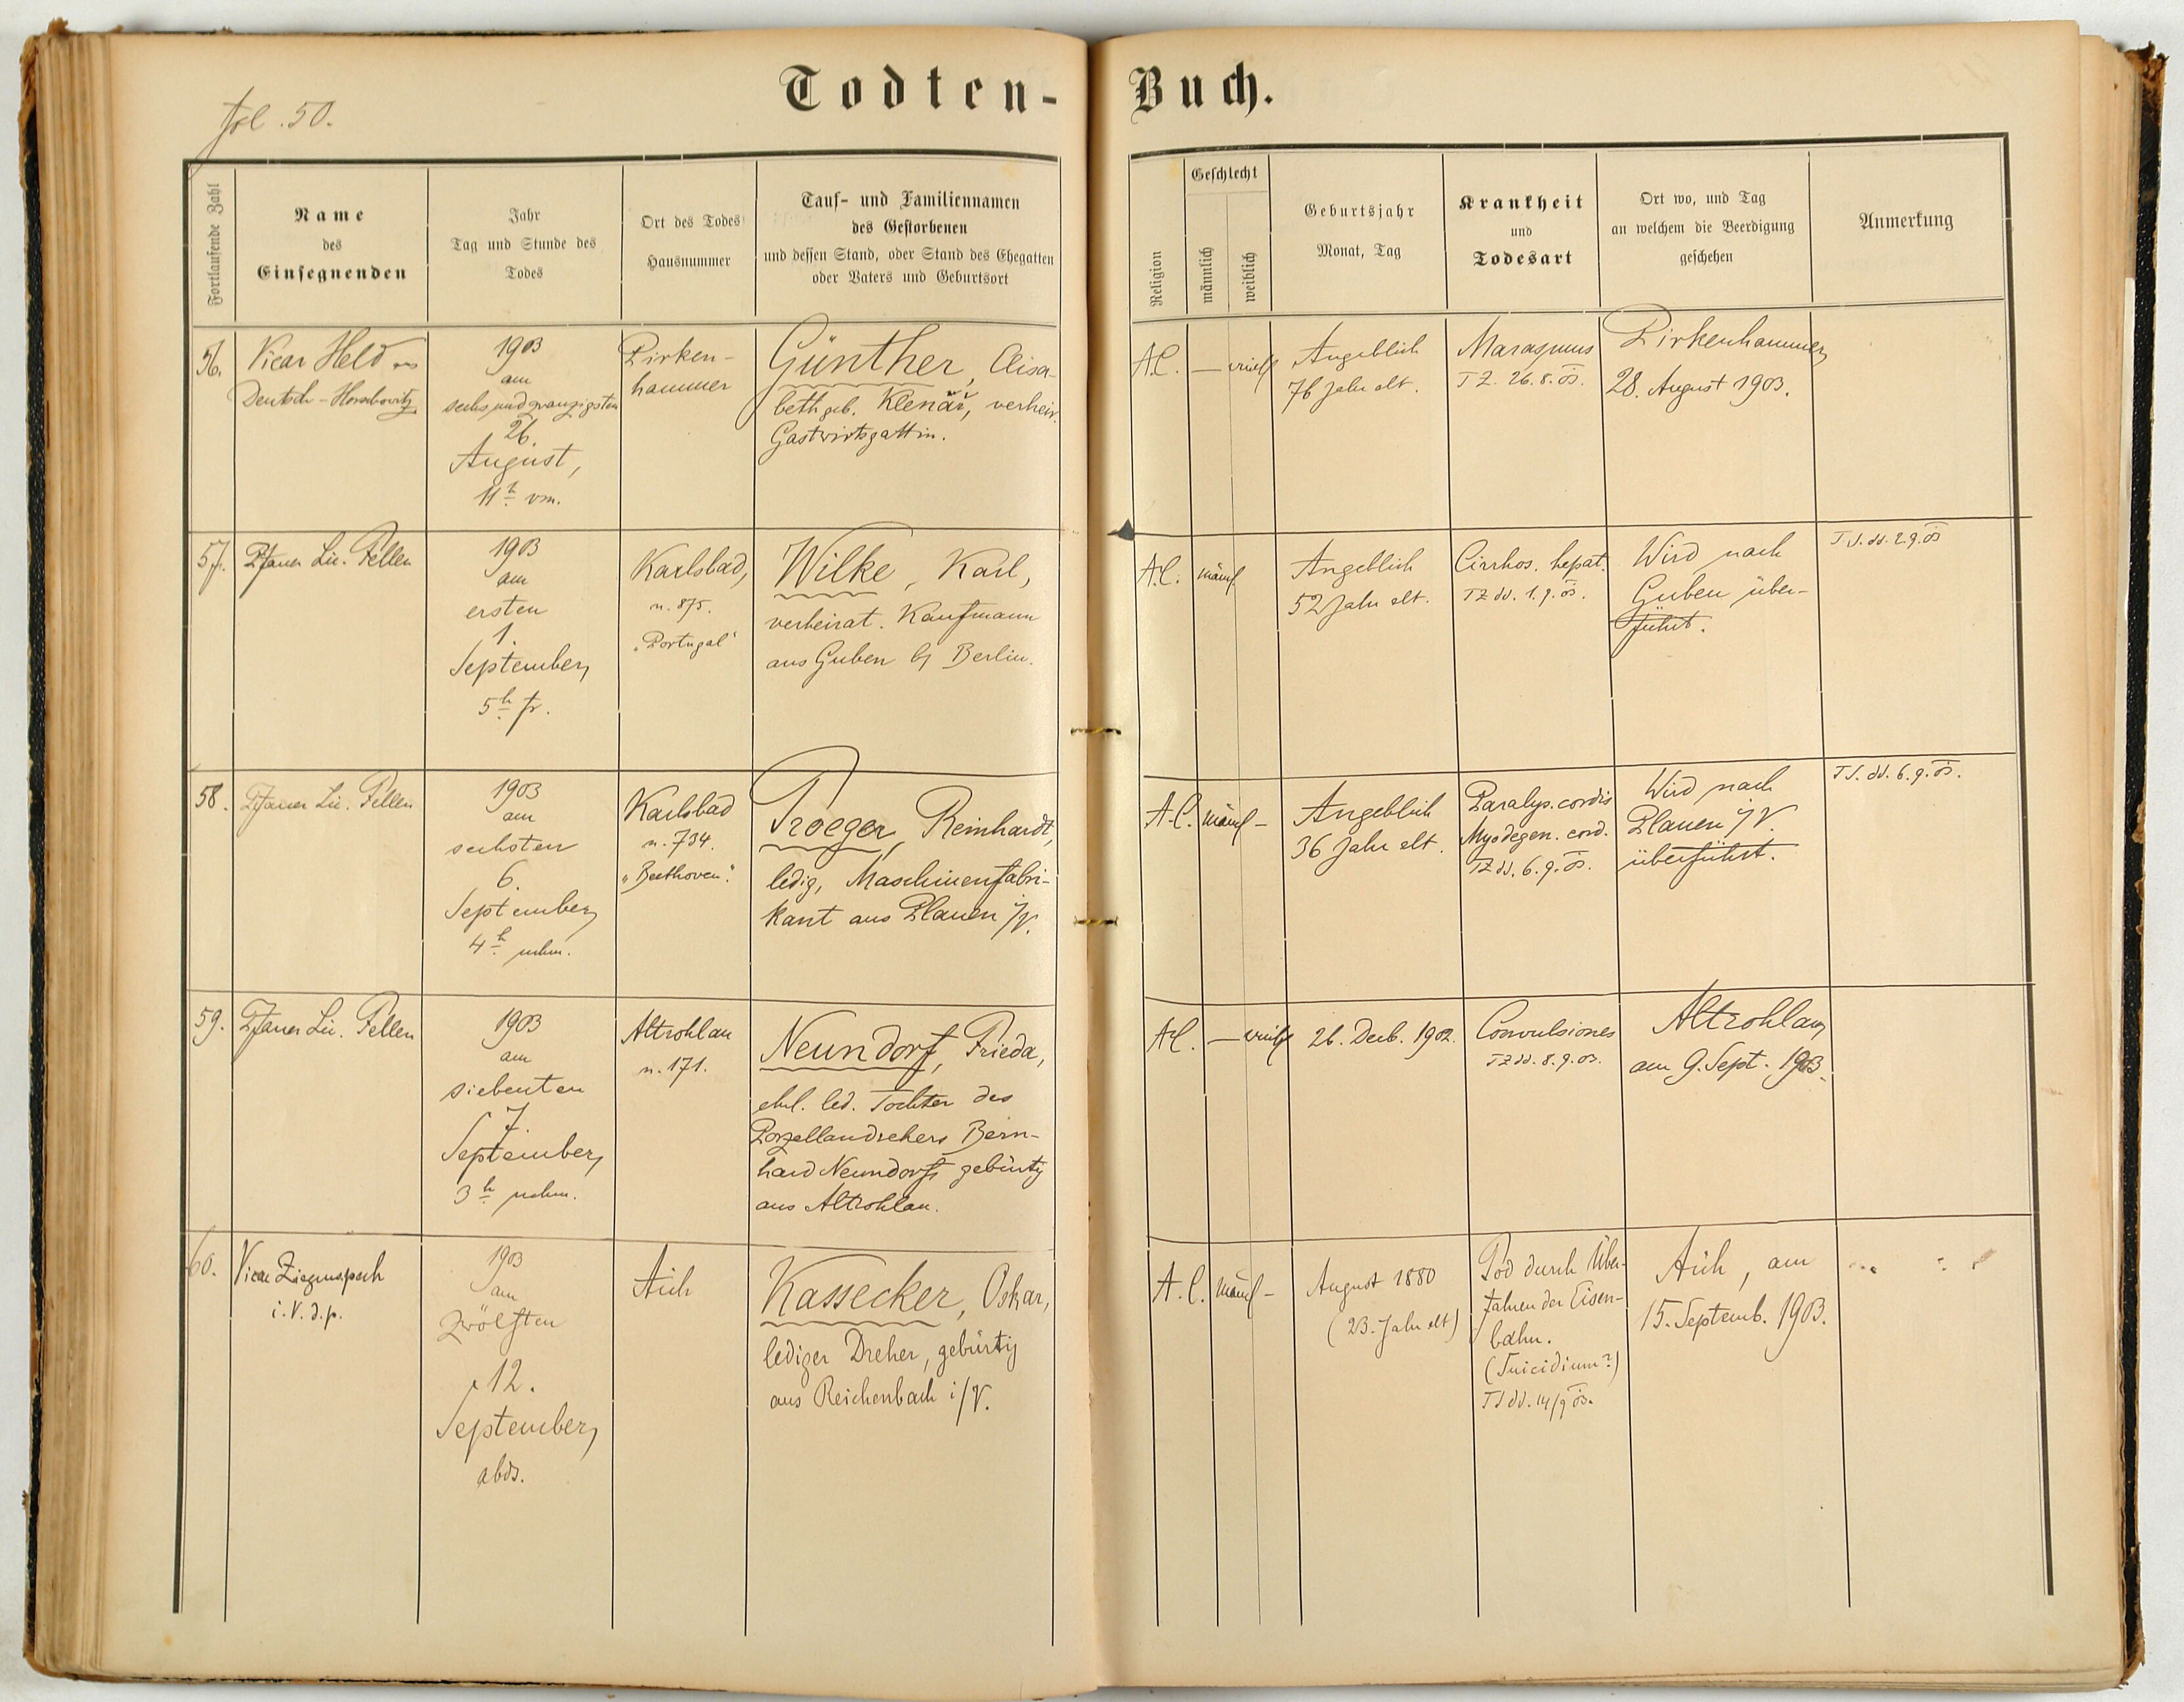 Todten-Buch.
fol. 50.
Fortlaufende Zahl
Name
des
Einsegnenden
Jahr
Tag und Stunde des
Todes
Ort des Todes
Hausnummer
Tauf- und Familiennamen
des Gestorbenen
und dessen Stand, oder Stand des Ehegatten
oder Vaters und Geburtsort
Religion
Geschlecht
männlich
weiblich
Geburtsjahr
Monat, Tag
Krankheit
und
Todesart
Ort wo, und Tag
an welchem die Beerdigung
geschehen
Anmerkung
56.
Vicar Held
1903
am
sechsundzwanzigsten
26.
August,
11h vm.
Pirken-
hammer
Günther, Elisa-
beth geb. Klenář, verheir.
Gastwirtsgattin.
A.C.
—
weibl
Angeblich
76 Jahr alt.
Marasmus
TZ. 26.8.03.
Pirkenhammer,
28. August 1903.
57.
Pfarrer Lic. Fellen
1903
am
ersten
1.
September,
5h fr.
Karlsbad,
n. 875.
"Portugal"
Wilke, Karl,
verheirat. Kaufmann
aus Guben b/ Berlin.
A.C.
männl
Angeblich
52 Jahr alt.
Cirrhos. hepat.
TZ dd. 1.9.03.
Wird nach
Guben über-
führt.
T.S. dd. 2.9.03
58.
Pfarrer Lic. Fellen
1903
am
sechsten
6.
September,
4h nchm.
Karlsbad
n. 734.
"Beethoven".
Troeger, Reinhardt,
ledig, Maschinenfabri-
kant aus Plauen i/V.
A.C.
männl –
Angeblich
36 Jahr alt.
Paralys. cordis
Myodegen. cord.
TZ dd. 6.9.03.
Wird nach
Plauen i/V.
überführt.
T.S. dd. 6.9.03.
59.
Pfarrer Lic. Fellen
1903
am
siebenten
7.
September,
3h nchm.
Altrohlau
n. 171.
Neundorf, Frieda,
ehel. led. Tochter des
Porzellandrehers Bern-
hard Neundorf, gebürtig
aus Altrohlau.
A.C.
— weibl
26. Decb. 1902.
Convulsiones
TZ dd. 8.9.03.
Altrohlau,
am 9. Sept. 1903.
60.
Vicar Ziegenspeck
i.V.d.p.
1903
am
zwölften
12.
September,
abds.
Aich
Kassecker, Oskar,
lediger Dreher, gebürtig
aus Reichenbach i/V.
A.C.
männl –
August 1880
(23. Jahr alt)
Tod durch Über-
fahren der Eisen-
bahn.
(Suicidium?)
TS dd. 14/9 03.
Aich, am
15. Septemb. 1903.